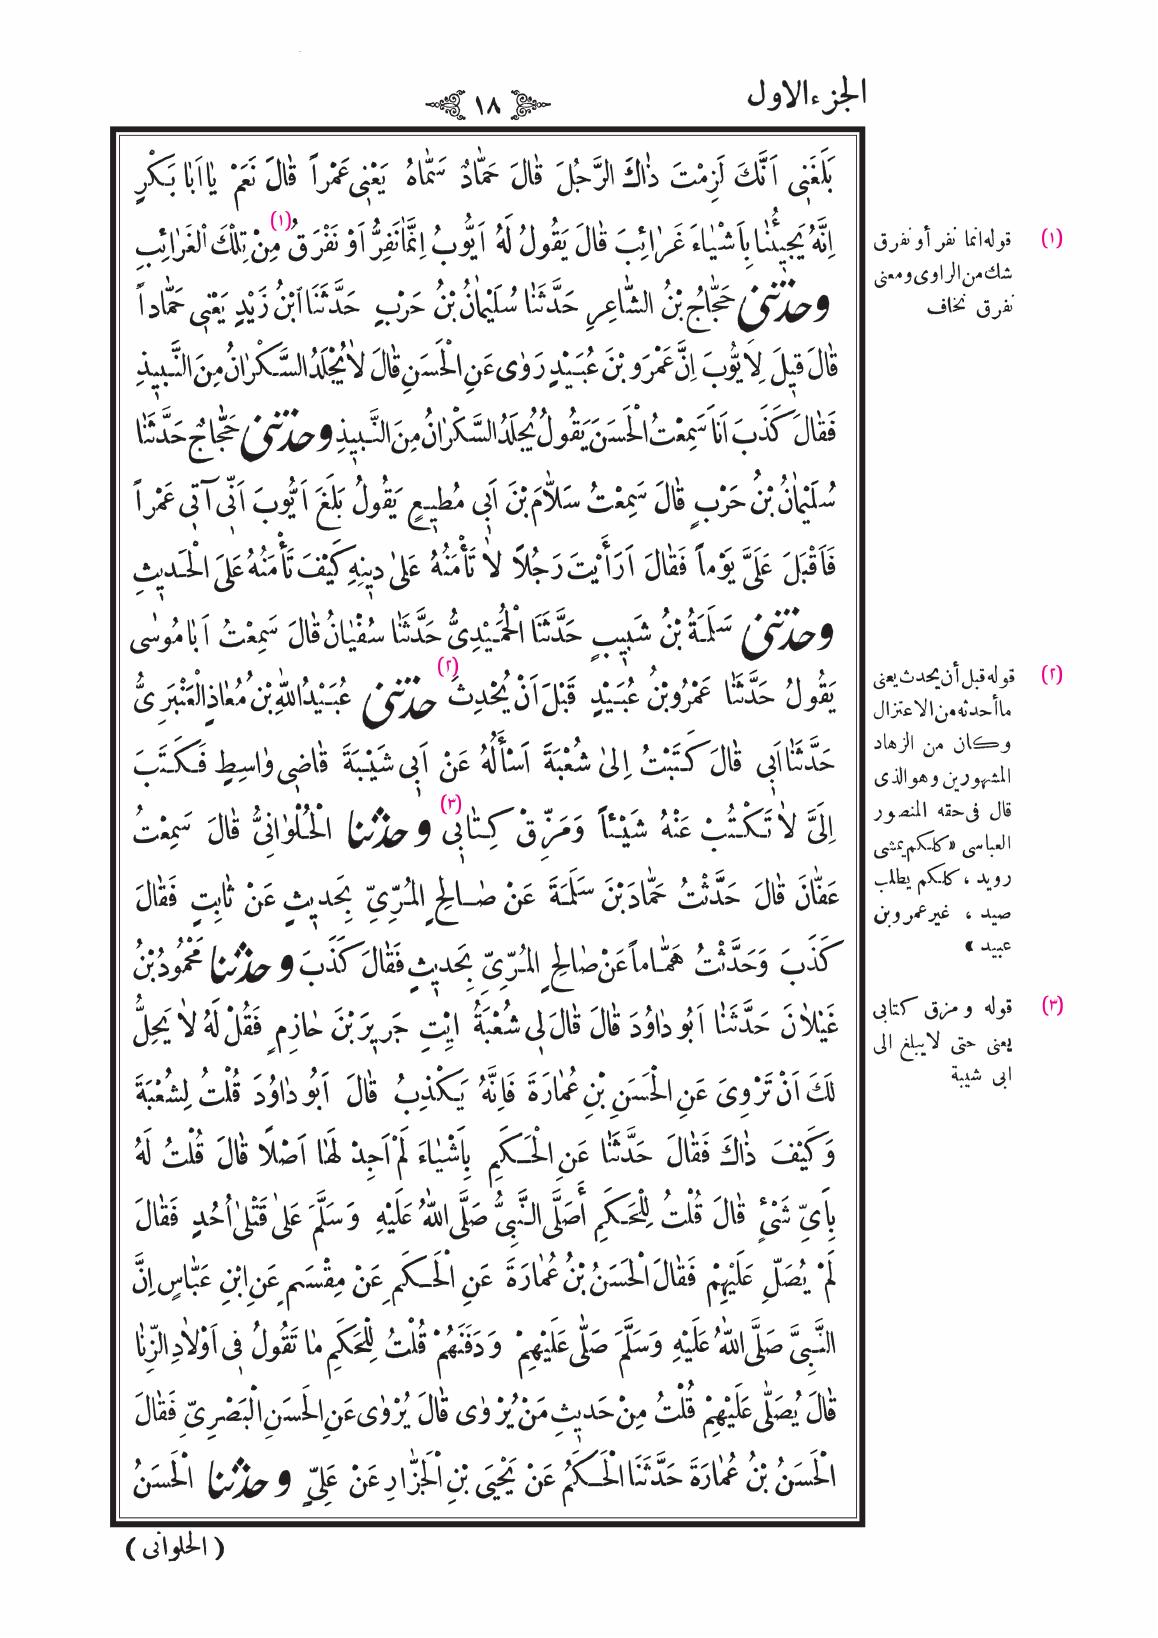 الجزء الاول
١٨
بَلَغَنِي اَنَّكَ لَزِمْتَ ذَاكَ الرَّجُلَ قَالَ حَمَّادٌ سَمَّاهُ يَعْنِي عَمْراً قَالَ نَعَمْ يَا اَبَا بَكْرٍ
اِنَّهُ يَجِيئُنَا بِاَشْيَاءَ غَرَائِبَ قَالَ يَقُولُ لَهُ اَيُّوبُ اِنَّمَا نَفِرُّ اَوْ نَفْرَقُ (١) مِنْ تِلْكَ الْغَرَائِبِ
وحدثنى حَجَّاجُ بْنُ الشَّاعِرِ حَدَّثَنَا سُلَيْمَانُ بْنُ حَرْبٍ حَدَّثَنَا ابْنُ زَيْدٍ يَعْنِي حَمَّاداً
قَالَ قِيلَ لِاَيُّوبَ اِنَّ عَمْرَو بْنَ عُبَيْدٍ رَوَى عَنِ الْحَسَنِ قَالَ لَا يُجْلَدُ السَّكْرَانُ مِنَ النَّبِيذِ
فَقَالَ كَذَبَ اَنَا سَمِعْتُ الْحَسَنَ يَقُولُ يُجْلَدُ السَّكْرَانُ مِنَ النَّبِيذِ وحدثنى حَجَّاجٌ حَدَّثَنَا
سُلَيْمَانُ بْنُ حَرْبٍ قَالَ سَمِعْتُ سَلَّامَ بْنَ اَبِي مُطِيعٍ يَقُولُ بَلَغَ اَيُّوبَ اَنِّي آتِي عَمْراً
فَاَقْبَلَ عَلَيَّ يَوْماً فَقَالَ اَرَأَيْتَ رَجُلاً لَا تَأْمَنُهُ عَلَى دِينِهِ كَيْفَ تَأْمَنُهُ عَلَى الْحَدِيثِ
وحدثنى سَلَمَةُ بْنُ شَبِيبٍ حَدَّثَنَا الْحُمَيْدِيُّ حَدَّثَنَا سُفْيَانُ قَالَ سَمِعْتُ اَبَا مُوسَى
يَقُولُ حَدَّثَنَا عَمْرُو بْنُ عُبَيْدٍ قَبْلَ اَنْ يُحْدِثَ (٢) حدثنى عُبَيْدُ اللّٰهِ بْنُ مُعَاذٍ الْعَنْبَرِيُّ
حَدَّثَنَا اَبِي قَالَ كَتَبْتُ اِلَى شُعْبَةَ اَسْأَلُهُ عَنْ اَبِي شَيْبَةَ قَاضِي وَاسِطٍ فَكَتَبَ
اِلَيَّ لَا تَكْتُبْ عَنْهُ شَيْئاً وَمَزِّقْ كِتَابِي (٣) وحدثنا الْحُلْوَانِيُّ قَالَ سَمِعْتُ
عَفَّانَ قَالَ حَدَّثْتُ حَمَّادَ بْنَ سَلَمَةَ عَنْ صَالِحٍ الْمُرِّيِّ بِحَدِيثٍ عَنْ ثَابِتٍ فَقَالَ
كَذَبَ وَحَدَّثْتُ هَمَّاماً عَنْ صَالِحٍ الْمُرِّيِّ بِحَدِيثٍ فَقَالَ كَذَبَ وحدثنا مَحْمُودُ بْنُ
غَيْلَانَ حَدَّثَنَا اَبُو دَاوُدَ قَالَ قَالَ لِي شُعْبَةُ ايِتِ جَرِيرَ بْنَ حَازِمٍ فَقُلْ لَهُ لَا يَحِلُّ
لَكَ اَنْ تَرْوِيَ عَنِ الْحَسَنِ بْنِ عُمَارَةَ فَاِنَّهُ يَكْذِبُ قَالَ اَبُو دَاوُدَ قُلْتُ لِشُعْبَةَ
وَكَيْفَ ذَاكَ فَقَالَ حَدَّثَنَا عَنِ الْحَكَمِ بِاَشْيَاءَ لَمْ اَجِدْ لَهَا اَصْلاً قَالَ قُلْتُ لَهُ
بِاَيِّ شَيْءٍ قَالَ قُلْتُ لِلْحَكَمِ أَصَلَّى النَّبِيُّ صَلَّى اللّٰهُ عَلَيْهِ وَسَلَّمَ عَلَى قَتْلَى اُحُدٍ فَقَالَ
لَمْ يُصَلِّ عَلَيْهِمْ فَقَالَ الْحَسَنُ بْنُ عُمَارَةَ عَنِ الْحَكَمِ عَنْ مِقْسَمٍ عَنِ ابْنِ عَبَّاسٍ اِنَّ
النَّبِيَّ صَلَّى اللّٰهُ عَلَيْهِ وَسَلَّمَ صَلَّى عَلَيْهِمْ وَدَفَنَهُمْ قُلْتُ لِلْحَكَمِ مَا تَقُولُ فِي اَوْلَادِ الزِّنَا
قَالَ يُصَلَّى عَلَيْهِمْ قُلْتُ مِنْ حَدِيثِ مَنْ يُرْوَى قَالَ يُرْوَى عَنِ الْحَسَنِ الْبَصْرِيِّ فَقَالَ
الْحَسَنُ بْنُ عُمَارَةَ حَدَّثَنَا الْحَكَمُ عَنْ يَحْيَى بْنِ الْجَزَّارِ عَنْ عَلِيٍّ وحدثنا الْحَسَنُ
( الحلوانى )
(١) قوله انما نفر أو نفرق
شك من الراوى ومعنى
نفرق نخاف
(٢) قوله قبل أن يحدث يعنى
ما أحدثه من الاعتزال
وكان من الزهاد
المشهورين وهو الذى
قال فى حقه المنصور
العباسى «كلكم يمشى
رويد ، كلكم يطلب
صيد ، غير عمرو بن
عبيد »
(٣) قوله ومزق كتابى
يعنى حتى لا يبلغ الى
ابى شيبة